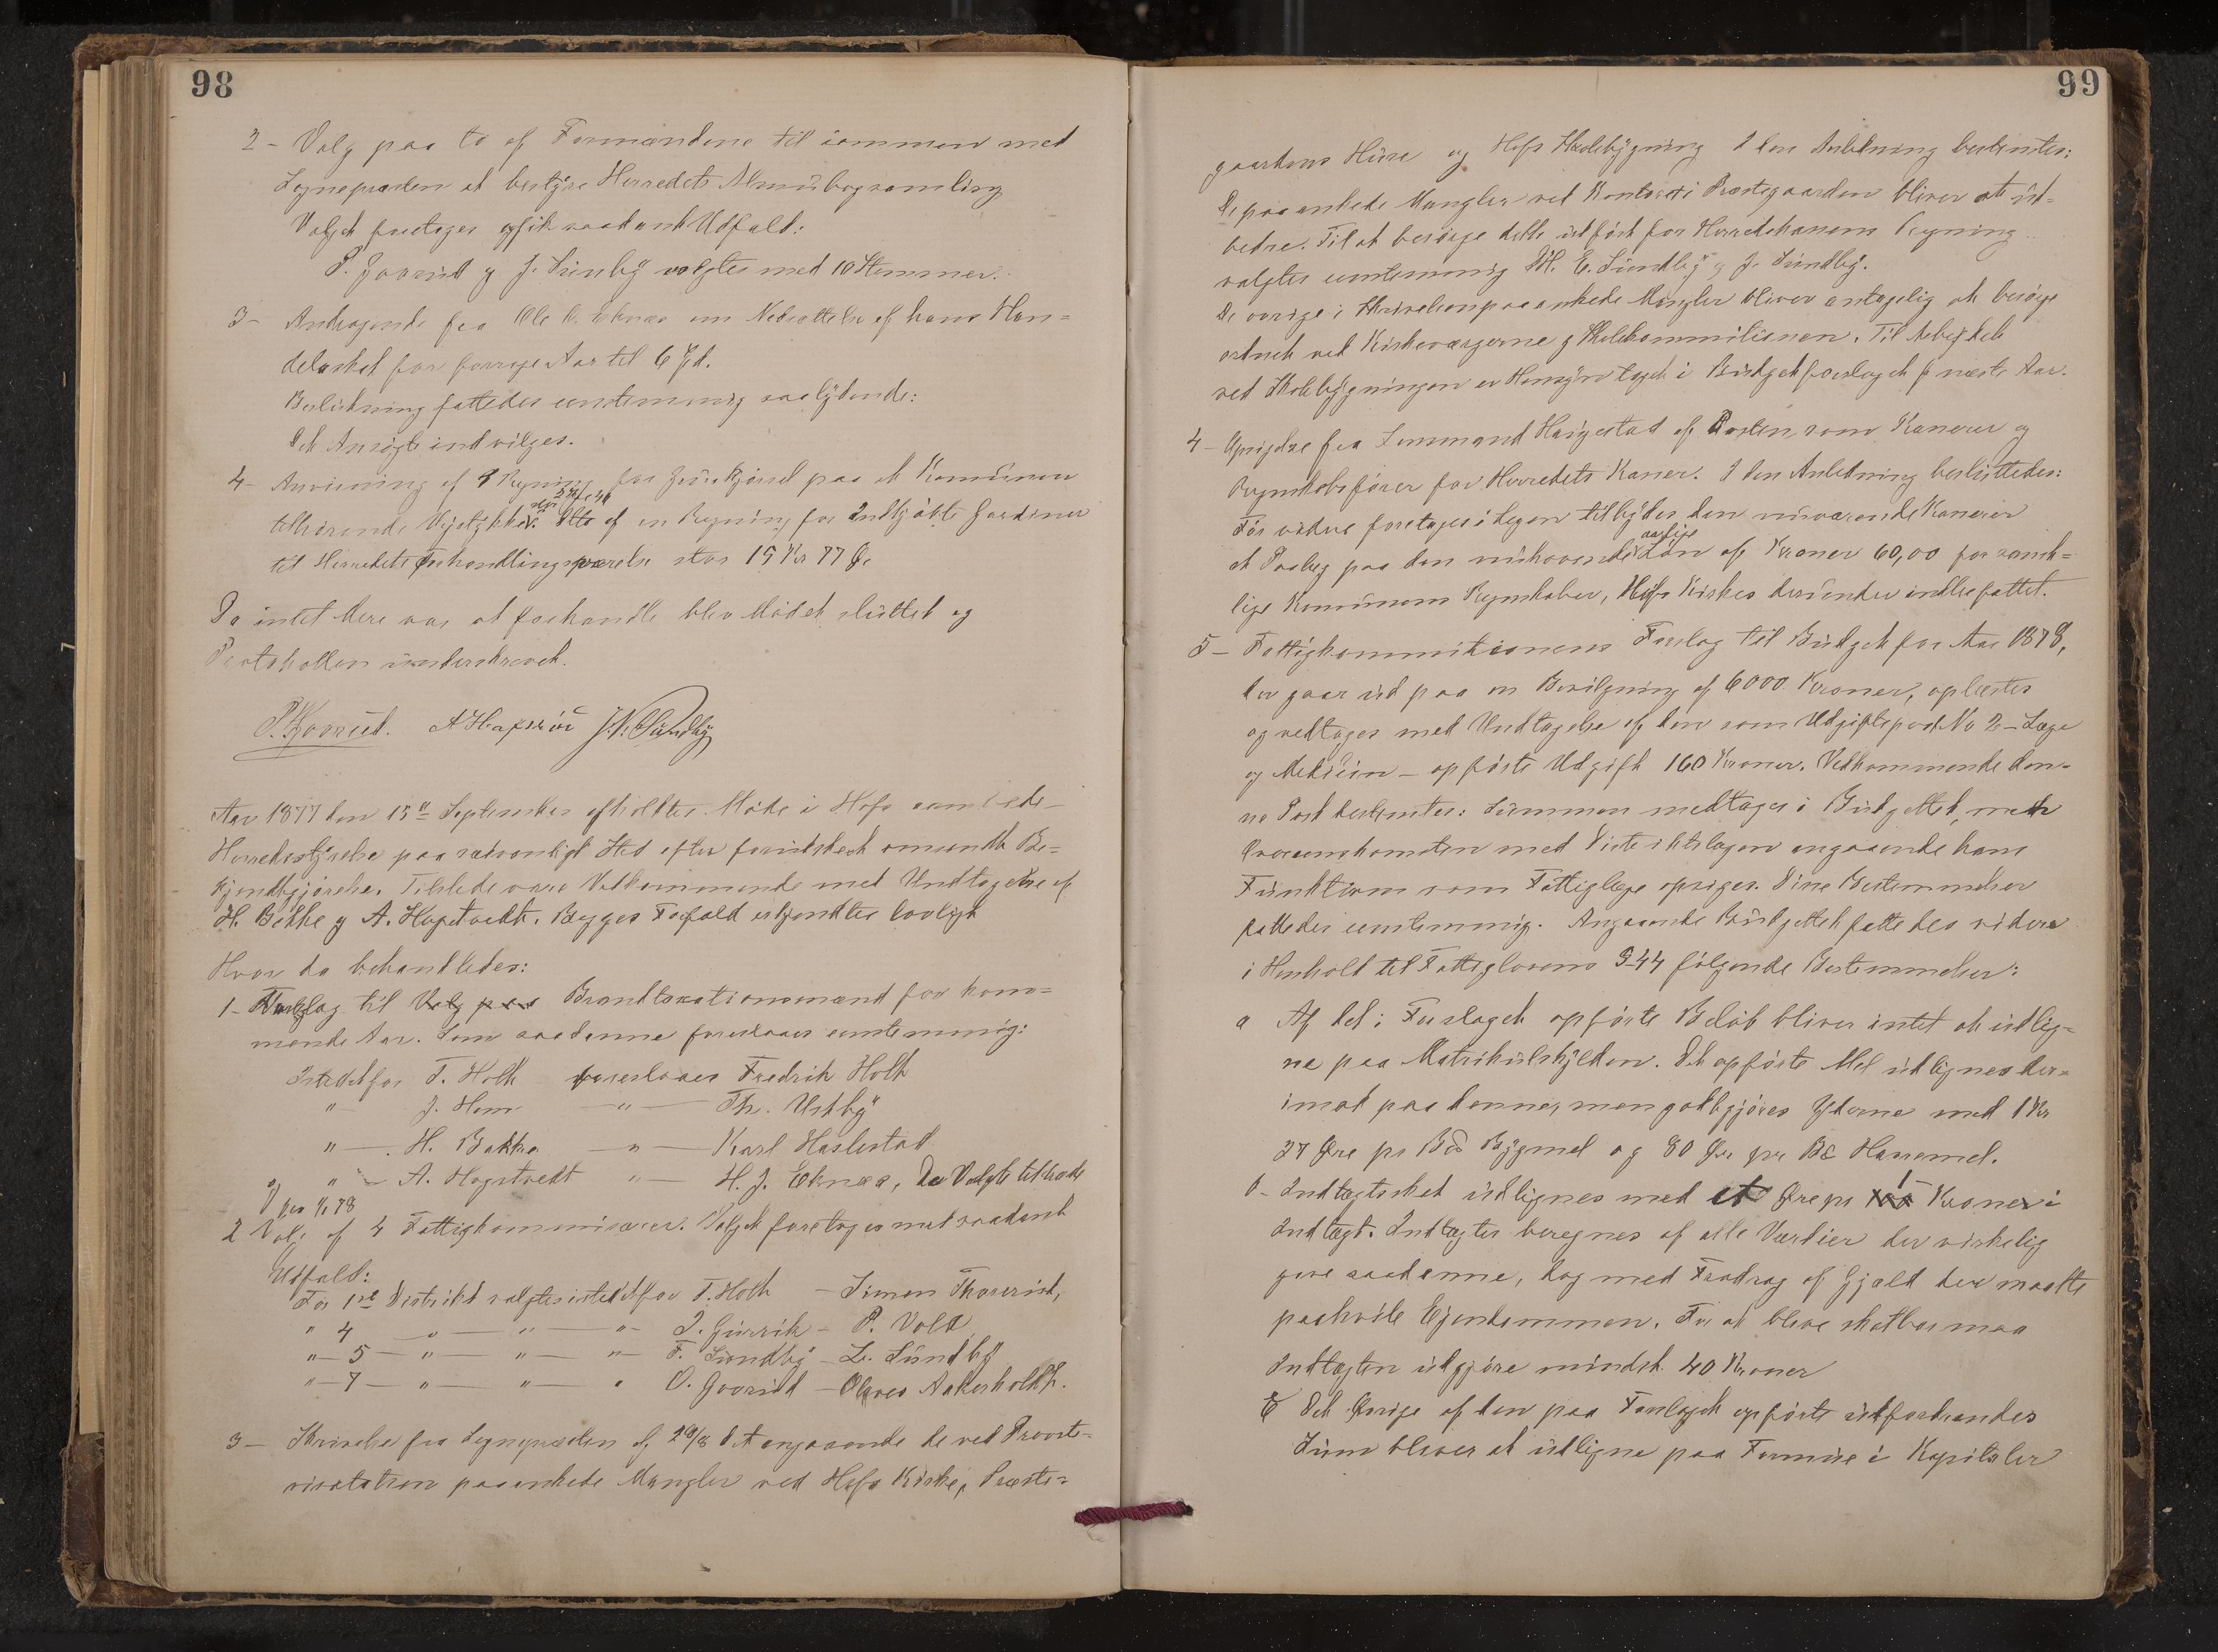 98
2 - Valg paa to af Formændene til sammen med
Sognepræsten at bestyre Herredets Almuebogsamling
Valget foretoges og fik saadant Udfald:
P. Goorud og J. Sundby valgtes med 10 Stemmer.
3 - Andragende fra Ole O. Eknæs om Nedsættelse af hans Han=
delsskat for forrige Aar til 6 Spd.
Beslutning fattedes eenstemmig saalydende:
Det Ansøgte indvilges.
4 - Anvisning af Regning for paa et Kommunen
tilhørende Ditto af en Regning for Indkjøbte Gardiner
til Herredets Forhandlingsværelse stor 15 Kr 77 Øre
Da intet Mere var at forhandle blev Mødet sluttet og
Protokollen underskrevet.
P. Goorud. J. N. Sundby
Aar 1877 den 15de September afholdtes Møde i Hofs samlede
Herredsstyrelse paa sædvanligt Sted efter forudskeet omsendt Be=
kjendtgjørelse. Tilstede vare Vedkommende med Undtagelse af
H. Bakke og A. Hogstvedt. Begges Forfald erkjendtes lovligt
Hvor da behandledes:
1 - Forslag til Valg paa Brandtaxationsmænd for kom=
mende Aar. Som saadanne foreslaaes eenstemmig:
Istedetfor T. Holt foreslaaes Fredrik Holt
" J. Hem — " — Th. Ustby
" — H. Bakke — " — Karl Haslestad
og " — A. Hogstvedt " — H. J. Eknæs, De Valgte tiltræde
fra 1/1 78
2 Valg af 4 Fattigkommissærer. Valget foretoges med saadant
Udfald:
For 1ste Distrikt valgtes istedetfor T. Holt — Simon Thorerud,
" 4 — " — " — " — I. Gurrik — P. Vold
" — 5 — " — " — " — F. Sundby — L. Sundby
" — 7 — " — " — " O. Goorud — Olaves Aakerholdt.
3 — Skrivelse fra Sognepræsten af 29/8 d. A. angaaende de ved Provste-
visitatsen paaankede Mangler ved Hofs Kirke, Præste=
99
gaardens Huse og Hofs Skolebygning I den Anledning bestemtes:
De paaankede Mangler ved Kontoret i Præstegaarden bliver at ud=
bedre. Til at besørge dette udført for Herredskassens Regning
valgtes eenstemmig E. Sundby og J. Sundby.
De øvrige i Skrivelsen paaankede Mangler bliver antagelig at besørge
ordnet ved Kirkeværgerne og Skolekommissionen. Til Arbeidet
ved Skolebygningen er Hensyn taget i Budgetforslaget for næste Aar.
4 — Opsigelse fra Lensmand Haslestad af Posten som Kasserer og
Regnskabsfører for Herredets Kasser. I den Anledning besluttedes:
Før videre foretages i Sagen tilbydes den nuværende Kasserer
et Paalæg paa den nuhavende aarlige Løn af Kroner 60,00 for samt=
lige Kommunens Regnskaber, Hofs Kirkes derunder indbefattet.
5 — Fattigkommissionens Forslag til Budget for Aar 1878,
der gaar ud paa en Bevilgning af 6000 Kroner, oplæstes
og vedtages med Undtagelse af den som Udgiftspost No 2 — Læge
og Medicin — opførte Udgift 160 Kroner. Vedkommende den=
ne Post bestemtes: Summen medtages i Budgettet, men
Overenskomsten med Distriktslægen angaaende hans
Funktion som Fattiglæge opsiges. Disse Bestemmelser
fattedes eenstemmig. Angaaende Budgettet fattedes videre
i Henhold til Fattiglovens § 44 følgende Bestemmelser:
a Af det i Forslaget opførte Beløb bliver intet at udlig=
ne paa Matrikulskylden. Det opførte Mel udlignes der=
imod paa denne, men godtgjøres Yderne med 1 Kr
27 Øre pr Bygmel og 80 Øre pr Havremel.
b - Indtægtsskat udlignes med et Øre pr 1 Krone i
Indtægt. Indtægter beregnes af alle Værdier der virkelig
give saadanne, dog med Fradrag af Gjæld der maatte
paahvile Ejendommen. For at blive skatbar maa
Indtægten udgjøre mindst 40 Kroner
C Det Øvrige af den paa Forslaget opførte udfordrendes
Sum bliver at udligne paa Formue i Kapitaler